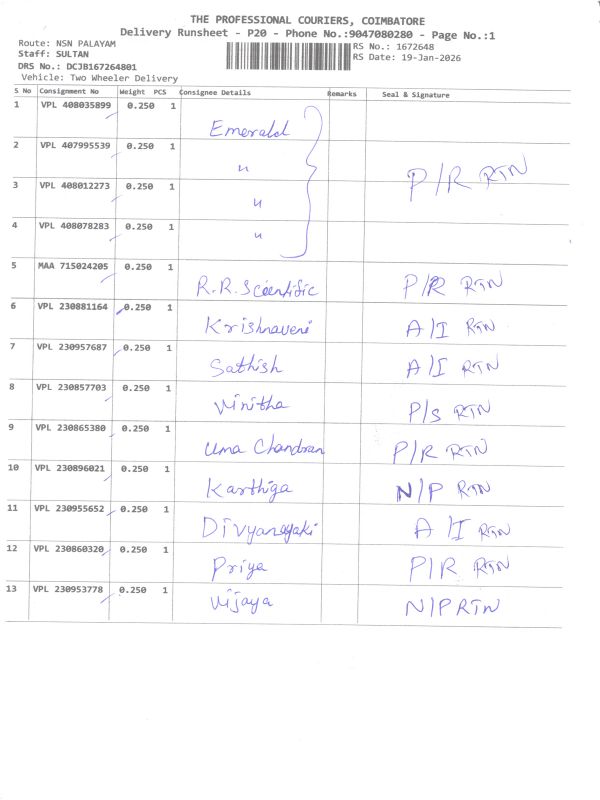 THE PROFESSIONAL COURIERS, COIMBATORE
Delivery Runsheet - P20 - Phone No.:9047080280 - Page No.:1
Route: NSN PALAYAM
RS No.: 1672648
Staff: SULTAN
RS Date: 19-Jan-2026
DRS No.: DCJB167264801
Vehicle: Two Wheeler Delivery
S No Consignment No Weight PCS Consignee Details Remarks Seal & Signature
1 VPL 408035899 0.250 1 Emerald
2 VPL 407995539 0.250 1 " P/R RTN
3 VPL 408012273 0.250 1 "
4 VPL 408078283 0.250 1 "
5 MAA 715024205 0.250 1 R.R. Scientific P/R RTN
6 VPL 230881164 0.250 1 Krishnaveni A/I RTN
7 VPL 230957687 0.250 1 Sathish A/I RTN
8 VPL 230857703 0.250 1 Vinitha P/S RTN
9 VPL 230865380 0.250 1 Uma Chandran P/R RTN
10 VPL 230896021 0.250 1 Karthiga N/P RTN
11 VPL 230955652 0.250 1 Divyanayaki A/I RTN
12 VPL 230860320 0.250 1 Priya P/R RTN
13 VPL 230953778 0.250 1 Vijaya N/P RTN